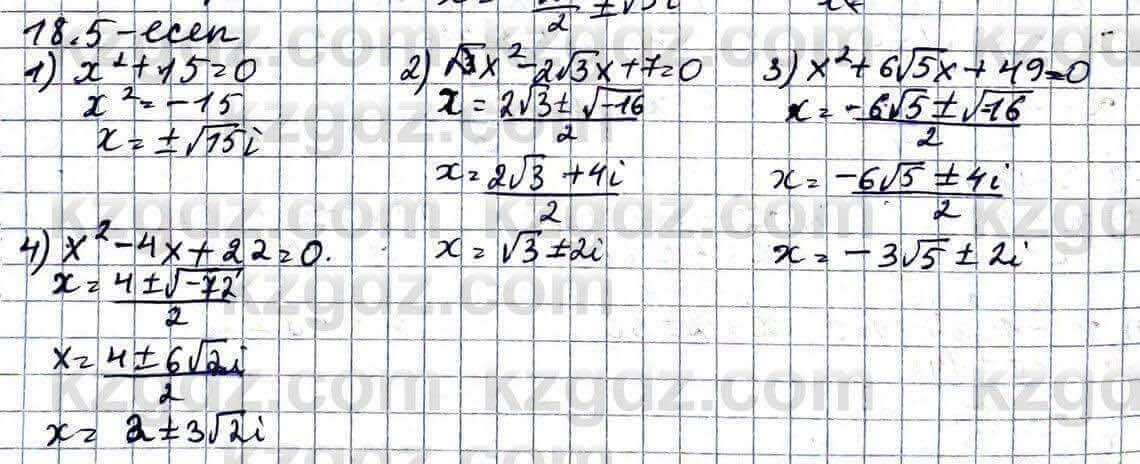 18.5-есеп
1) x² + 15 = 0
x² = -15
x = ±√15i
2) √3x² - 2√3x + 7 = 0
x = (2√3 ± √-16)/2
x = (2√3 + 4i)/2
x = √3 ± 2i
3) x² + 6√5x + 49 = 0
x = (-6√5 ± √-16)/2
x = (-6√5 ± 4i)/2
x = -3√5 ± 2i
4) x² - 4x + 22 = 0.
x = (4 ± √-72)/2
x = (4 ± 6√2i)/2
x = 2 ± 3√2i
kzgdz.com